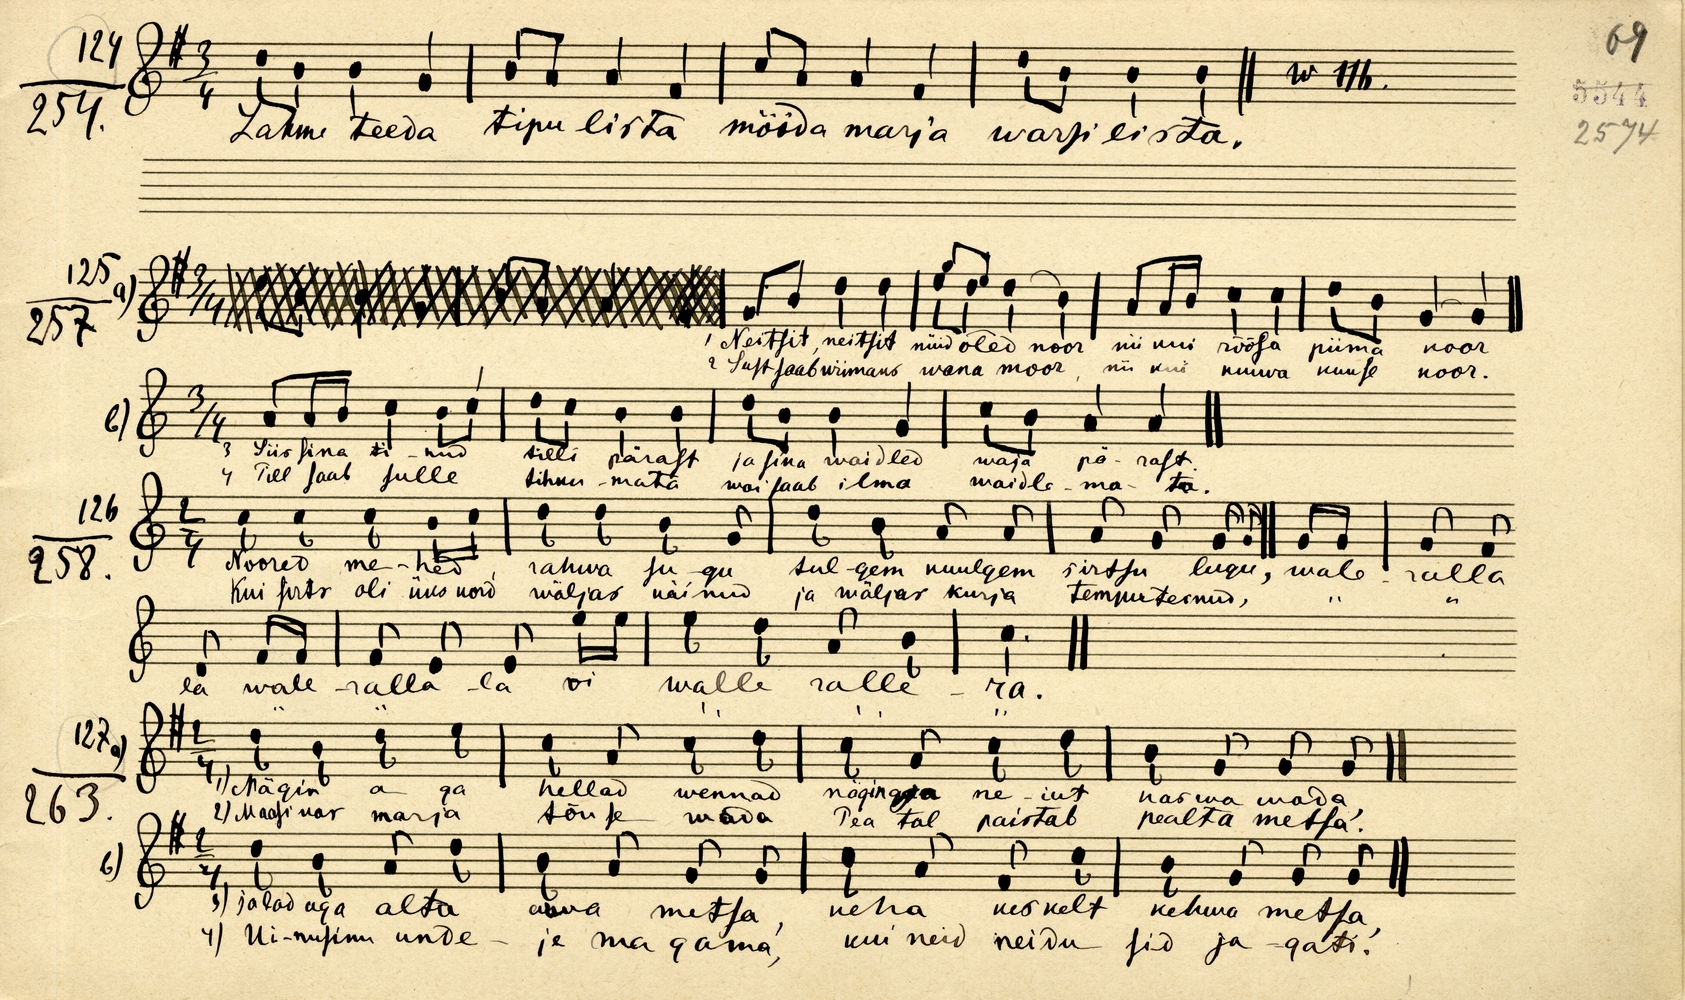 124
254.
3/4
w 116.
69
5544
2574
Lahme teeda tipulista mööda marja warsi lista.
125 a)
257
3/4
1 Neitsit, neitsit nüid oled noor nii kui rõõsa piima noor
2 Sust saab wiimaks wana moor, nii kui kuiwa kuuse noor.
b) 3/4
3 Siis sina ti-nud tilli pärast ja sina waidled waja pä-rast.
4 Till saab sulle tihnu-mata wai saab ilma waidle-ma-ta.
126
258.
2/4
Noored me-hed, rahwa su-gu sul-gem kuulgem sirtsu lugu, wale-ralla
Kui sirts oli üks kord wäljas käinud ja wäljas kurja tempu teinud, " "
la wale-ralla-la oi walle ralle-ra.
" " " " "
127 a)
263.
2/4
1) Nägin a-ga hellad wennad nägin ne-iut kaswa wada,
2) Maasikas marja tõuse wada Pea tal paistab pealta metsa.
b) 2/4
3) jalad aga alta metsa, keha keskelt kehwa metsa,
4) Ui-nusinu unde-je ma gama, kui neid neidu sid ja-gati.